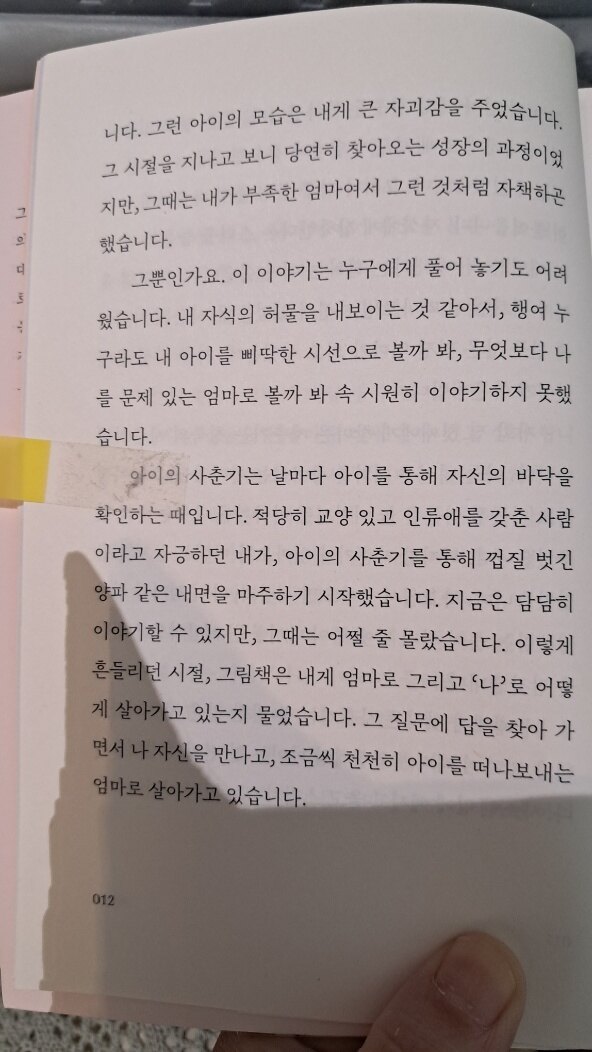 니다. 그런 아이의 모습은 내게 큰 자괴감을 주었습니다.
그 시절을 지나고 보니 당연히 찾아오는 성장의 과정이었
지만, 그때는 내가 부족한 엄마여서 그런 것처럼 자책하곤
했습니다.
그뿐인가요. 이 이야기는 누구에게 풀어 놓기도 어려
웠습니다. 내 자식의 허물을 내보이는 것 같아서, 행여 누
구라도 내 아이를 삐딱한 시선으로 볼까 봐, 무엇보다 나
를 문제 있는 엄마로 볼까 봐 속 시원히 이야기하지 못했
습니다.
아이의 사춘기는 날마다 아이를 통해 자신의 바닥을
확인하는 때입니다. 적당히 교양 있고 인류애를 갖춘 사람
이라고 자긍하던 내가, 아이의 사춘기를 통해 껍질 벗긴
양파 같은 내면을 마주하기 시작했습니다. 지금은 담담히
이야기할 수 있지만, 그때는 어쩔 줄 몰랐습니다. 이렇게
흔들리던 시절, 그림책은 내게 엄마로 그리고 ‘나’로 어떻
게 살아가고 있는지 물었습니다. 그 질문에 답을 찾아 가
면서 나 자신을 만나고, 조금씩 천천히 아이를 떠나보내는
엄마로 살아가고 있습니다.
012